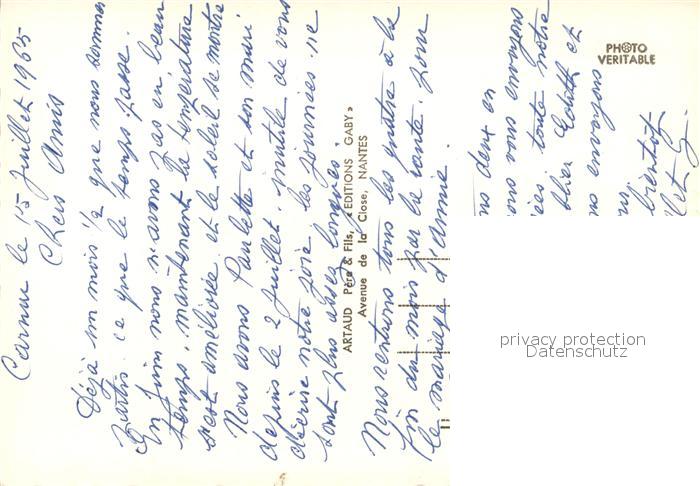 Carnac le 15 Juillet 1965
Chers Amis
Déjà un mois 1/2 que nous sommes
partis. ce que le temps passe.
En juin nous n'avons pas eu beau
temps. maintenant la température
s'est améliorée et le soleil se montre
Nous avons Paulette et son mari
depuis le 2 juillet. inutile de vous
décrire notre joie les journées ne
sont plus assez longues.
Nous rentrons tous les quatre à la
fin du mois par la route. pour
le mariage d'Annie.
ns deux en
ons vous envoyons
ées toute notre
blier Edith et
ns envoyons
bientôt
ARTAUD Père & Fils, «EDITIONS GABY»
Avenue de la Close, NANTES
PHOTO
VERITABLE
privacy protection
Datenschutz